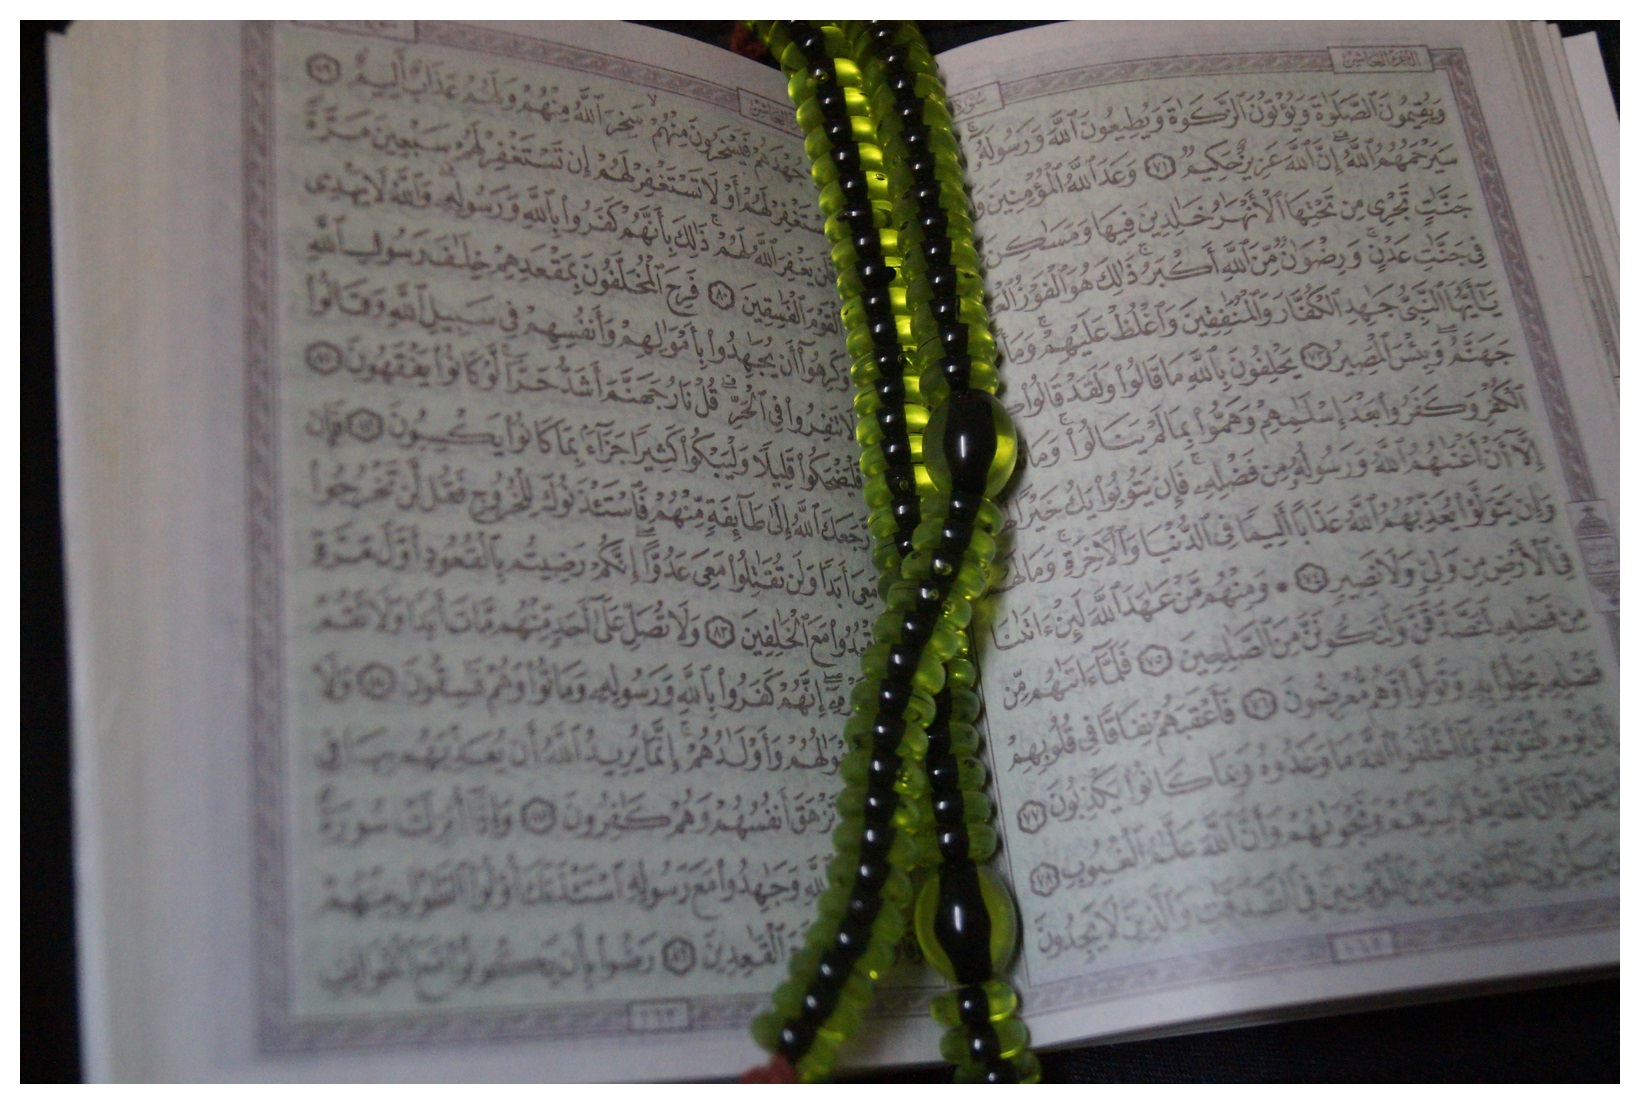 الجزء العاشر
سُورَةُ
وَيُقِيمُونَ ٱلصَّلَوٰةَ وَيُؤْتُونَ ٱلزَّكَوٰةَ وَيُطِيعُونَ ٱللَّهَ وَرَسُولَهُۥٓ ۚ
سَيَرْحَمُهُمُ ٱللَّهُ ۗ إِنَّ ٱللَّهَ عَزِيزٌ حَكِيمٌ ٧١ وَعَدَ ٱللَّهُ ٱلْمُؤْمِنِينَ
جَنَّٰتٍ تَجْرِى مِن تَحْتِهَا ٱلْأَنْهَٰرُ خَٰلِدِينَ فِيهَا وَمَسَٰكِنَ
فِى جَنَّٰتِ عَدْنٍ ۚ وَرِضْوَٰنٌ مِّنَ ٱللَّهِ أَكْبَرُ ۚ ذَٰلِكَ هُوَ ٱلْفَوْزُ
يَٰٓأَيُّهَا ٱلنَّبِىُّ جَٰهِدِ ٱلْكُفَّارَ وَٱلْمُنَٰفِقِينَ وَٱغْلُظْ عَلَيْهِمْ ۚ وَمَأ
جَهَنَّمُ ۖ وَبِئْسَ ٱلْمَصِيرُ ٧٣ يَحْلِفُونَ بِٱللَّهِ مَا قَالُوا۟ وَلَقَدْ قَالُوا۟
ٱلْكُفْرِ وَكَفَرُوا۟ بَعْدَ إِسْلَٰمِهِمْ وَهَمُّوا۟ بِمَا لَمْ يَنَالُوا۟ ۚ وَمَا
إِلَّآ أَنْ أَغْنَىٰهُمُ ٱللَّهُ وَرَسُولُهُۥ مِن فَضْلِهِۦ ۚ فَإِن يَتُوبُوا۟ يَكُ خَيْرًا
وَإِن يَتَوَلَّوْا۟ يُعَذِّبْهُمُ ٱللَّهُ عَذَابًا أَلِيمًا فِى ٱلدُّنْيَا وَٱلْءَاخِرَةِ ۚ وَمَا لَهُمْ
فِى ٱلْأَرْضِ مِن وَلِىٍّ وَلَا نَصِيرٍ ٧٤ وَمِنْهُم مَّنْ عَٰهَدَ ٱللَّهَ لَئِنْ ءَاتَىٰنَا
مِن فَضْلِهِۦ لَنَصَّدَّقَنَّ وَلَنَكُونَنَّ مِنَ ٱلصَّٰلِحِينَ ٧٥ فَلَمَّآ ءَاتَىٰهُم مِّن
فَضْلِهِۦ بَخِلُوا۟ بِهِۦ وَتَوَلَّوا۟ وَّهُم مُّعْرِضُونَ ٧٦ فَأَعْقَبَهُمْ نِفَاقًا فِى قُلُوبِهِمْ
إِلَىٰ يَوْمِ يَلْقَوْنَهُۥ بِمَآ أَخْلَفُوا۟ ٱللَّهَ مَا وَعَدُوهُ وَبِمَا كَانُوا۟ يَكْذِبُونَ ٧٧
يَعْلَمُوٓا۟ أَنَّ ٱللَّهَ يَعْلَمُ سِرَّهُمْ وَنَجْوَىٰهُمْ وَأَنَّ ٱللَّهَ عَلَّٰمُ ٱلْغُيُوبِ ٧٨
ٱلْمُطَّوِّعِينَ مِنَ ٱلْمُؤْمِنِينَ فِى ٱلصَّدَقَٰتِ وَٱلَّذِينَ لَا يَجِدُونَ
جُهْدَهُمْ فَيَسْخَرُونَ مِنْهُمْ ۙ سَخِرَ ٱللَّهُ مِنْهُمْ وَلَهُمْ عَذَابٌ أَلِيمٌ ٧٩
لَهُمْ أَوْ لَا تَسْتَغْفِرْ لَهُمْ إِن تَسْتَغْفِرْ لَهُمْ سَبْعِينَ مَرَّةً
يَغْفِرَ ٱللَّهُ لَهُمْ ۚ ذَٰلِكَ بِأَنَّهُمْ كَفَرُوا۟ بِٱللَّهِ وَرَسُولِهِۦ ۗ وَٱللَّهُ لَا يَهْدِى
ٱلْقَوْمَ ٱلْفَٰسِقِينَ ٨٠ فَرِحَ ٱلْمُخَلَّفُونَ بِمَقْعَدِهِمْ خِلَٰفَ رَسُولِ ٱللَّهِ
وَكَرِهُوٓا۟ أَن يُجَٰهِدُوا۟ بِأَمْوَٰلِهِمْ وَأَنفُسِهِمْ فِى سَبِيلِ ٱللَّهِ وَقَالُوا۟
لَا تَنفِرُوا۟ فِى ٱلْحَرِّ ۗ قُلْ نَارُ جَهَنَّمَ أَشَدُّ حَرًّا ۚ لَّوْ كَانُوا۟ يَفْقَهُونَ ٨١
فَلْيَضْحَكُوا۟ قَلِيلًا وَلْيَبْكُوا۟ كَثِيرًا جَزَآءًۢ بِمَا كَانُوا۟ يَكْسِبُونَ ٨٢ فَإِن
رَّجَعَكَ ٱللَّهُ إِلَىٰ طَآئِفَةٍ مِّنْهُمْ فَٱسْتَـْٔذَنُوكَ لِلْخُرُوجِ فَقُل لَّن تَخْرُجُوا۟
مَعِىَ أَبَدًا وَلَن تُقَٰتِلُوا۟ مَعِىَ عَدُوًّا ۖ إِنَّكُمْ رَضِيتُم بِٱلْقُعُودِ أَوَّلَ مَرَّةٍ
مَعَ ٱلْخَٰلِفِينَ ٨٣ وَلَا تُصَلِّ عَلَىٰٓ أَحَدٍ مِّنْهُم مَّاتَ أَبَدًا وَلَا تَقُمْ
إِنَّهُمْ كَفَرُوا۟ بِٱللَّهِ وَرَسُولِهِۦ وَمَاتُوا۟ وَهُمْ فَٰسِقُونَ ٨٤ وَلَا
وَأَوْلَٰدُهُمْ ۚ إِنَّمَا يُرِيدُ ٱللَّهُ أَن يُعَذِّبَهُم بِهَا فِى
وَتَزْهَقَ أَنفُسُهُمْ وَهُمْ كَٰفِرُونَ ٨٥ وَإِذَآ أُنزِلَتْ سُورَةٌ
وَجَٰهِدُوا۟ مَعَ رَسُولِهِ ٱسْتَـْٔذَنَكَ أُو۟لُوا۟ ٱلطَّوْلِ مِنْهُمْ
ٱلْقَٰعِدِينَ ٨٦ رَضُوا۟ بِأَن يَكُونُوا۟ مَعَ ٱلْخَوَالِفِ